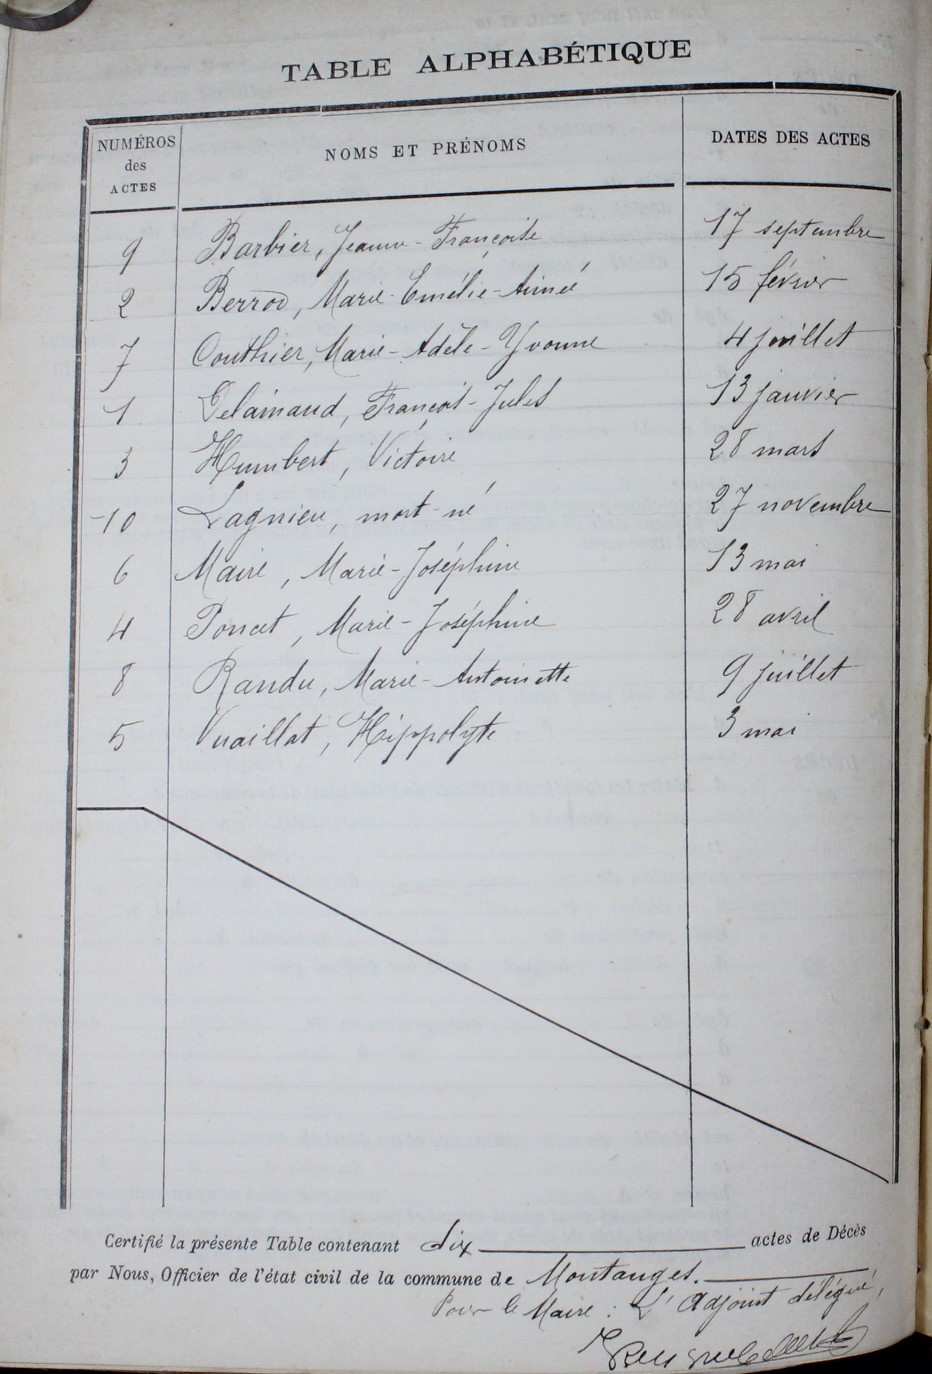 TABLE ALPHABÉTIQUE
NUMÉROS des ACTES NOMS ET PRÉNOMS DATES DES ACTES
9 Barbier, Jeanne-Françoise 17 septembre
2 Berrod, Marie-Emélie-Aimée 15 février
7 Couthier, Marie-Adèle-Yvonne 4 juillet
1 Delainaud, François-Jules 13 janvier
3 Humbert, Victoire 28 mars
10 Lagnieu, mort-né 27 novembre
6 Maire, Marie-Joséphine 13 mai
4 Poncet, Marie-Joséphine 28 avril
8 Randu, Marie-Antoinette 9 juillet
5 Vuaillat, Hippolyte 3 mai
Certifié la présente Table contenant dix actes de Décès
par Nous, Officier de l'état civil de la commune de Montanges.
Pour le Maire : L'Adjoint délégué,